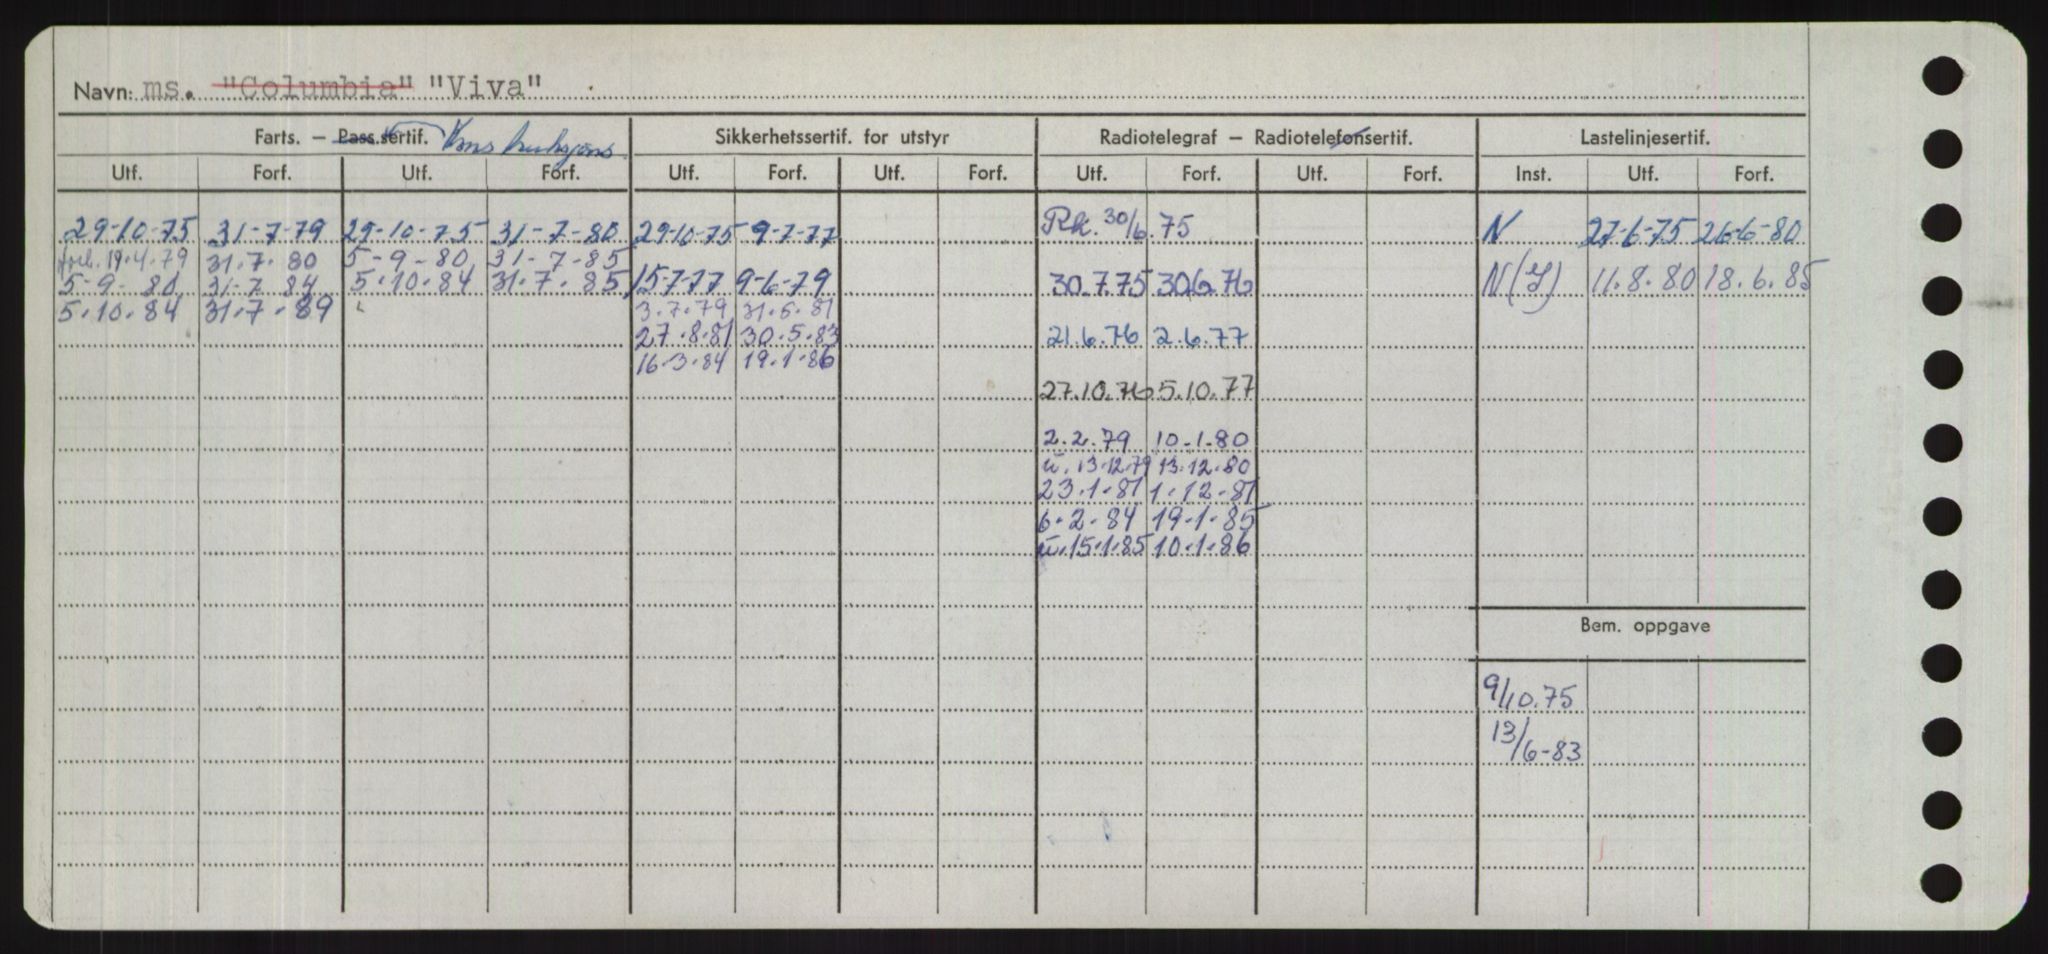 Navn: ms. "Columbia" "Viva"
Farts. — Pass.sertif. Konstruksjons. Sikkerhetssertif. for utstyr Radiotelegraf — Radiotelefonsertif. Lastelinjesertif.
Utf. Forf. Utf. Forf. Utf. Forf. Utf. Forf. Utf. Forf. Utf. Forf. Inst. Utf. Forf.
29-10-75 31-7-79 29-10-75 31-7-80 29-10-75 9-7-77 Rk. 30/6.75 N 27-6-75 26-6-80
forl. 19.4.79 31.7.80 5-9-80 31-7-85
5-9-80 31-7-84 5.10.84 31.7.85 15-7-77 9-6-79 30.7.75 30.6.76 N(I) 11.8.80 18.6.85
5.10.84 31.7.89 3.7.79 31.5.81
27.8.81 30.5.83 21.6.76 2.6.77
16.3.84 19.1.86
27.10.76 5.10.77
2.2.79 10.1.80
u. 13.12.79 13.12.80
23.1.81 1.12.81
6.2.84 19.1.85
u. 15.1.85 10.1.86
Bem. oppgave
9/10.75
13/6-83